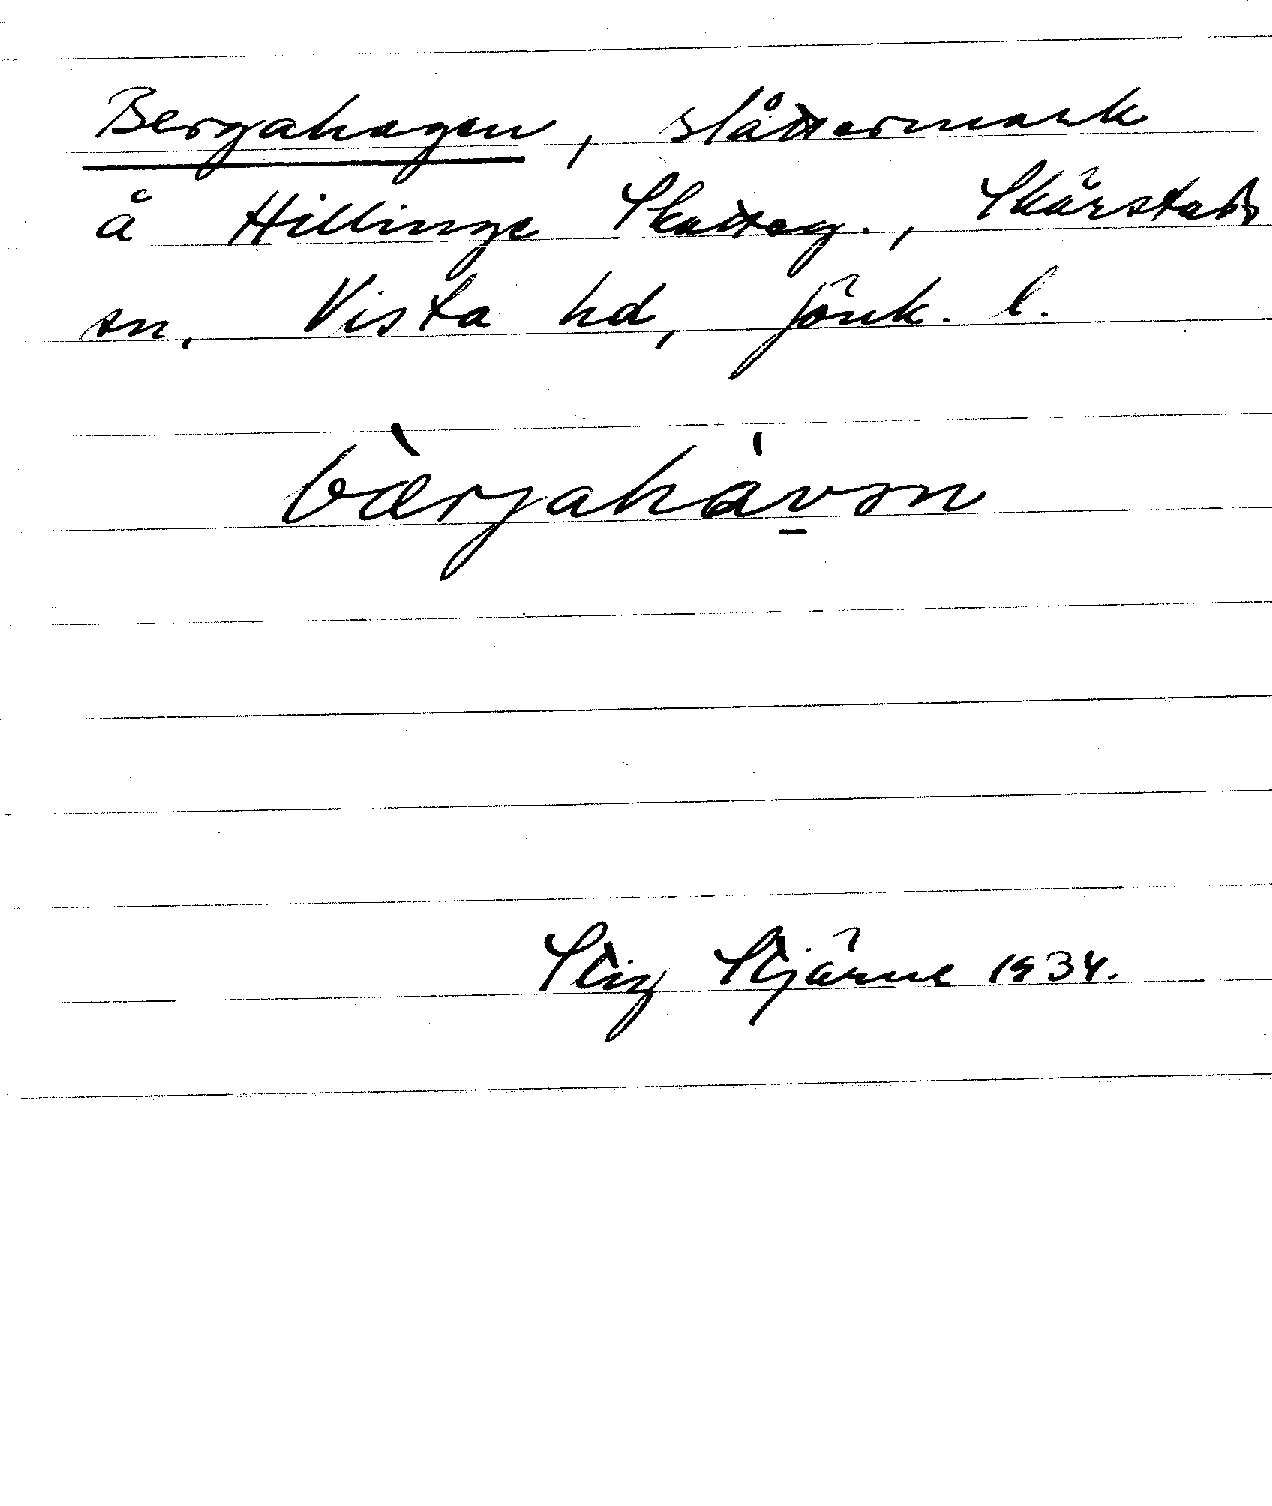 Bergahagen, slåttermark
å Hillinge Skatteg., Skärstads
sn, Vista hd, Jönk. l.
bærjahavən
Stig Stjärne 1934.